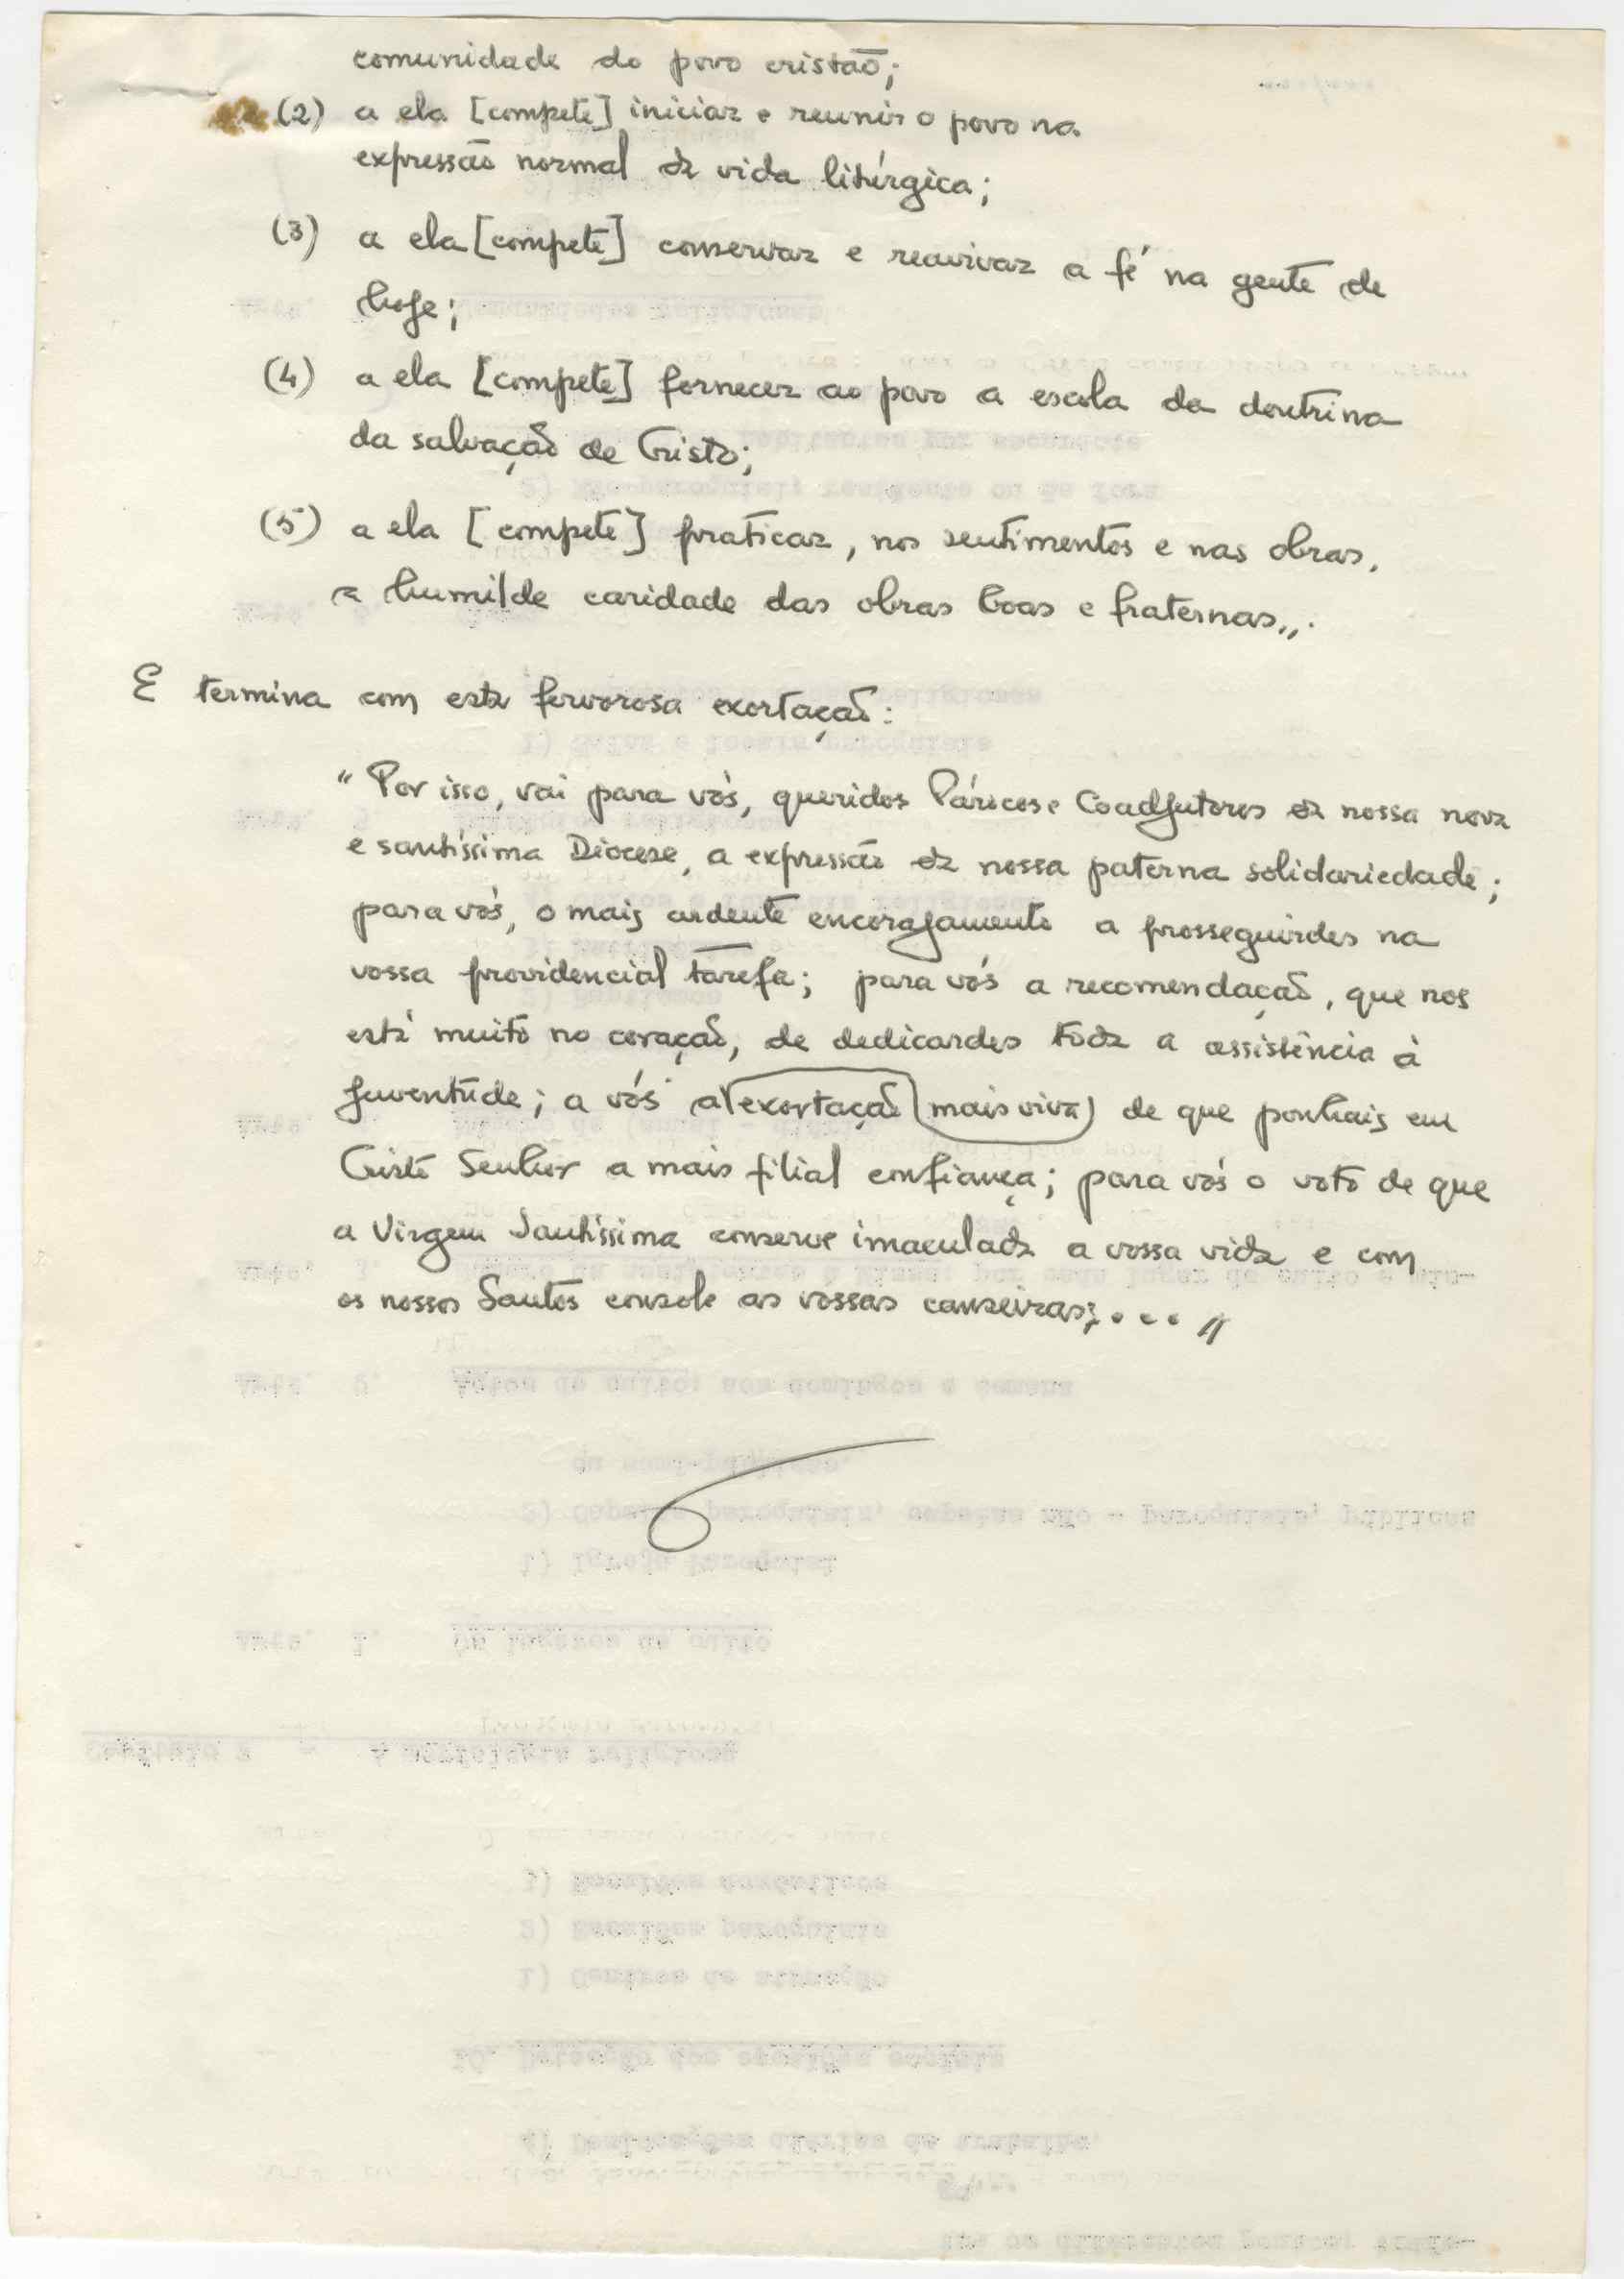 comunidade do povo cristão;
(2) a ela [compete] iniciar e reunir o povo na
expressão normal da vida litúrgica;
(3) a ela [compete] conservar e reavivar a fé na gente de
hoje;
(4) a ela [compete] fornecer ao povo a escola da doutrina
da salvação de Cristo;
(5) a ela [compete] praticar, nos sentimentos e nas obras,
a humilde caridade das obras boas e fraternas,,.
E termina com esta fervorosa exortação:
“Por isso, vai para vós, queridos Párocos e Coadjutores da nossa nova
e santíssima Diocese, a expressão da nossa paterna solidariedade;
para vós, o mais ardente encorajamento a prosseguirdes na
vossa providencial tarefa; para vós a recomendação, que nos
está muito no coração, de dedicardes toda a assistência à
juventude; a vós a exortação mais viva de que ponhais em
Cristo Senhor a mais filial confiança; para vós o voto de que
a Virgem Santíssima conserve imaculada a vossa vida e com
os nossos Santos console as vossas canseiras;... ”